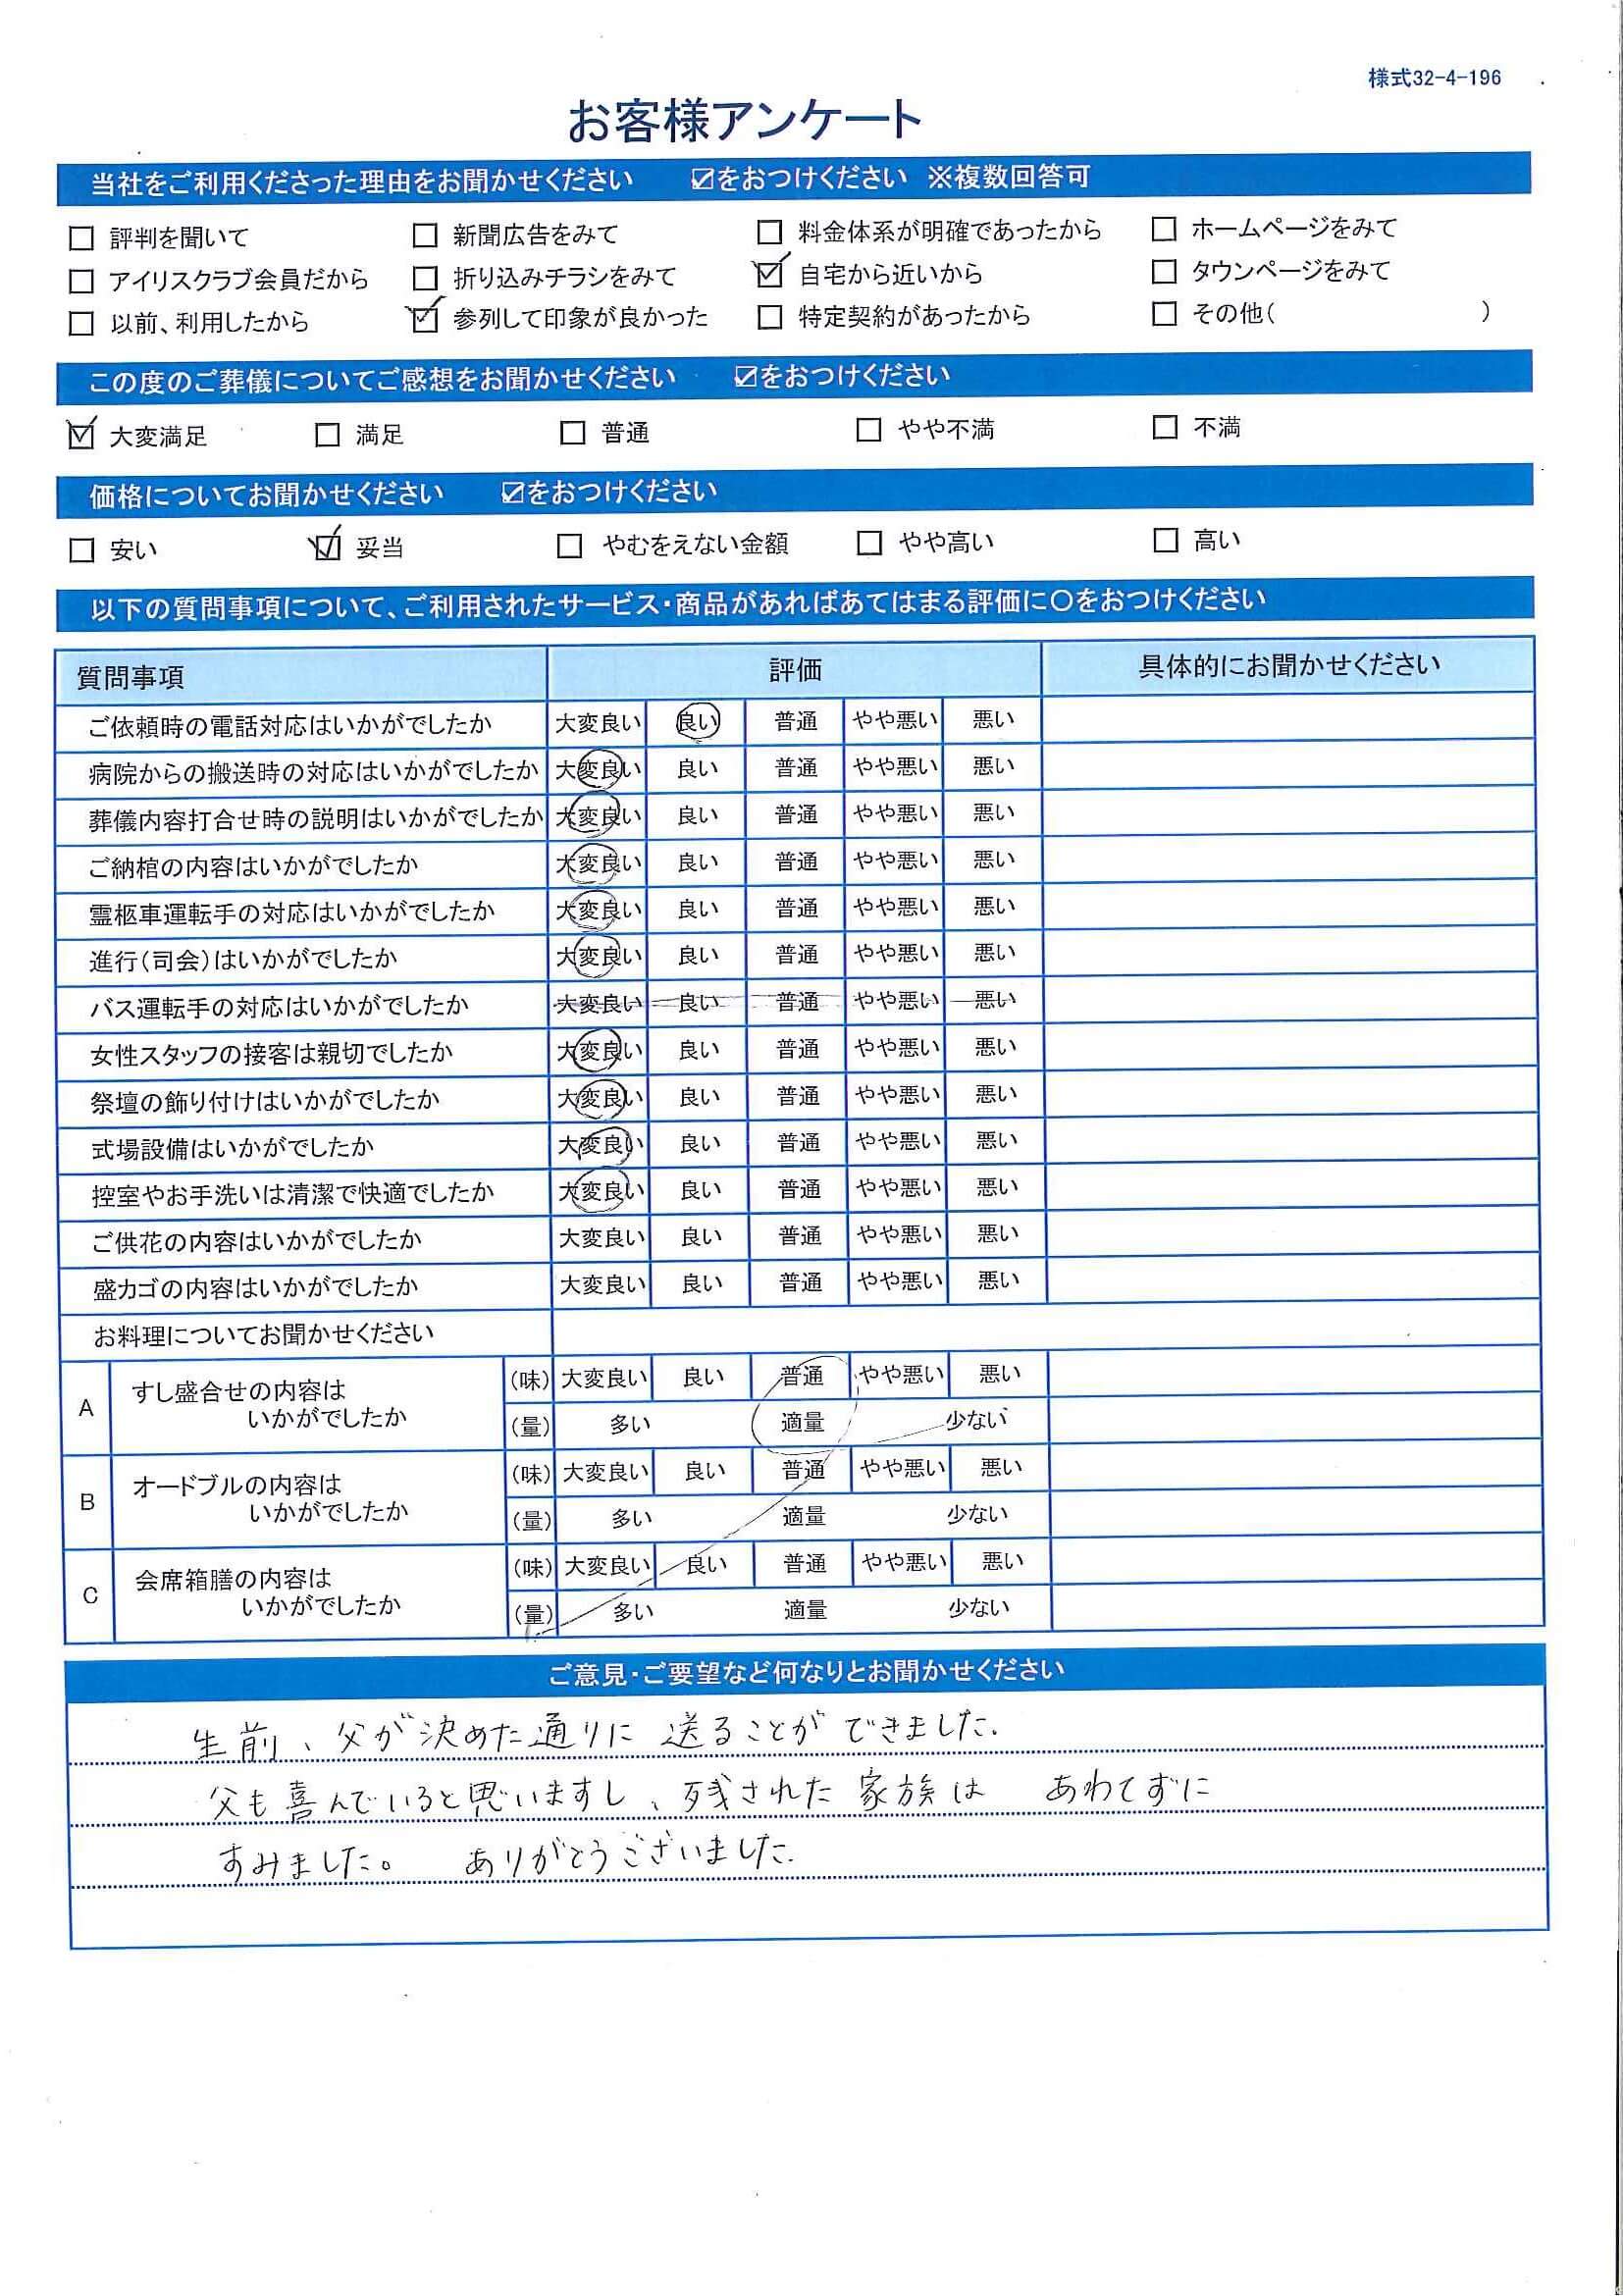 様式32-4-196
お客様アンケート
当社をご利用くださった理由をお聞かせください ☑をおつけください ※複数回答可
□ 評判を聞いて □ 新聞広告をみて □ 料金体系が明確であったから □ ホームページをみて
□ アイリスクラブ会員だから □ 折り込みチラシをみて ☑ 自宅から近いから □ タウンページをみて
□ 以前、利用したから ☑ 参列して印象が良かった □ 特定契約があったから □ その他( )
この度のご葬儀についてご感想をお聞かせください ☑をおつけください
☑ 大変満足 □ 満足 □ 普通 □ やや不満 □ 不満
価格についてお聞かせください ☑をおつけください
□ 安い ☑ 妥当 □ やむをえない金額 □ やや高い □ 高い
以下の質問事項について、ご利用されたサービス・商品があればあてはまる評価に〇をおつけください
質問事項 評価 具体的にお聞かせください
ご依頼時の電話対応はいかがでしたか 大変良い 良い 普通 やや悪い 悪い
病院からの搬送時の対応はいかがでしたか 大変良い 良い 普通 やや悪い 悪い
葬儀内容打合せ時の説明はいかがでしたか 大変良い 良い 普通 やや悪い 悪い
ご納棺の内容はいかがでしたか 大変良い 良い 普通 やや悪い 悪い
霊柩車運転手の対応はいかがでしたか 大変良い 良い 普通 やや悪い 悪い
進行(司会)はいかがでしたか 大変良い 良い 普通 やや悪い 悪い
バス運転手の対応はいかがでしたか 大変良い 良い 普通 やや悪い 悪い
女性スタッフの接客は親切でしたか 大変良い 良い 普通 やや悪い 悪い
祭壇の飾り付けはいかがでしたか 大変良い 良い 普通 やや悪い 悪い
式場設備はいかがでしたか 大変良い 良い 普通 やや悪い 悪い
控室やお手洗いは清潔で快適でしたか 大変良い 良い 普通 やや悪い 悪い
ご供花の内容はいかがでしたか 大変良い 良い 普通 やや悪い 悪い
盛カゴの内容はいかがでしたか 大変良い 良い 普通 やや悪い 悪い
お料理についてお聞かせください
A すし盛合せの内容は
いかがでしたか
(味) 大変良い 良い 普通 やや悪い 悪い
(量) 多い 適量 少ない
B オードブルの内容は
いかがでしたか
(味) 大変良い 良い 普通 やや悪い 悪い
(量) 多い 適量 少ない
C 会席箱膳の内容は
いかがでしたか
(味) 大変良い 良い 普通 やや悪い 悪い
(量) 多い 適量 少ない
ご意見・ご要望など何なりとお聞かせください
生前、父が決めた通りに 送ることが できました.
父も喜んでいると思いますし、残された 家族は あわてずに
すみました。 ありがとうございました.